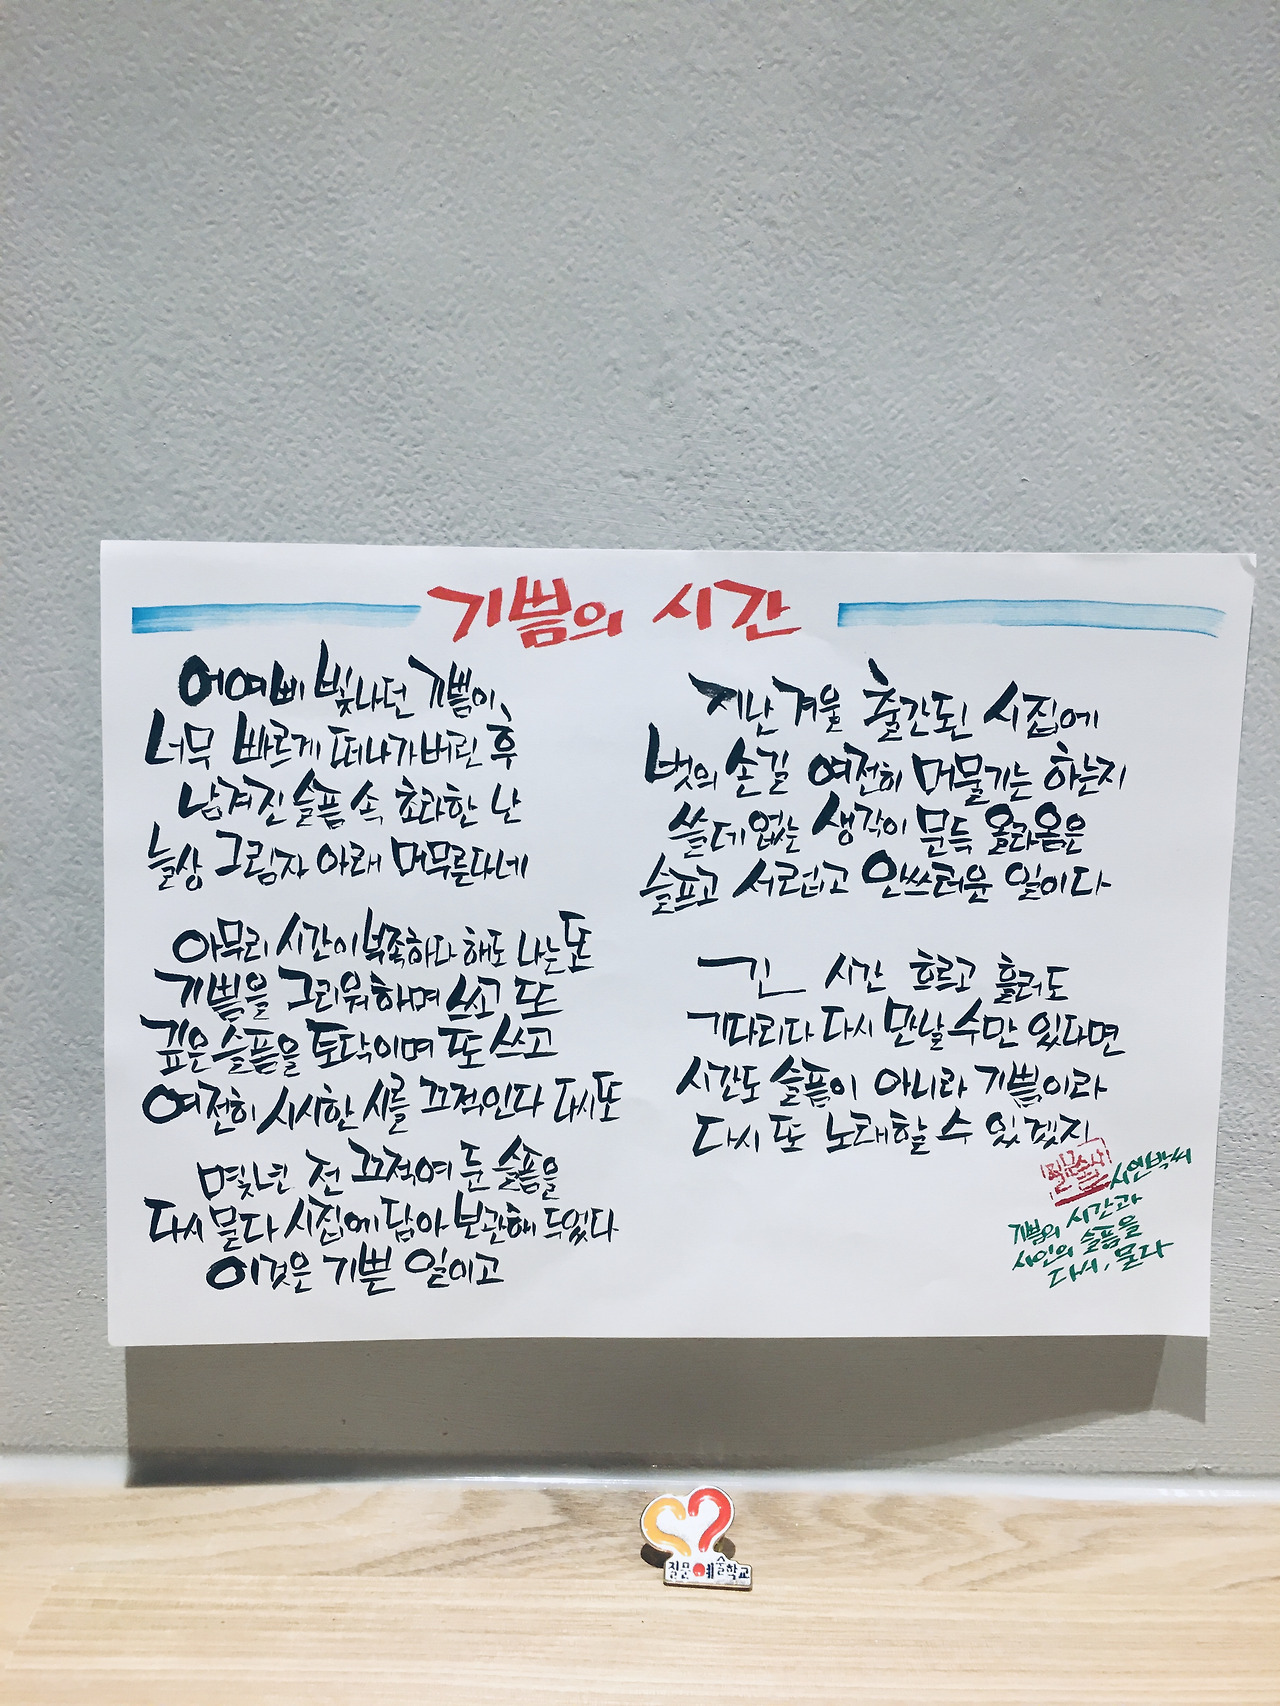 기쁨의 시간
어여삐 빛나던 기쁨이
너무 빠르게 떠나가버린 후
남겨진 슬픔 속 초라한 난
늘상 그림자 아래 머무른다네
아무리 시간이 부족하다 해도 나는 또
기쁨을 그리워하며 쓰고 또
깊은 슬픔을 토닥이며 또 쓰고
여전히 시시한 시를 끄적인다 다시 또
몇 년 전 끄적여 둔 슬픔을
다시 물다 시집에 담아 보관해 두었다
이것은 기쁜 일이고
지난 겨울 출간된 시집에
벗의 손길 여전히 머물기는 하는지
쓸데없는 생각이 문득 올라옴은
슬프고 서럽고 안쓰러운 일이다
긴 시간 흐르고 흘러도
기다리다 다시 만날 수만 있다면
시간도 슬픔이 아니라 기쁨이라
다시 또 노래할 수 있겠지
시인박씨
기쁨의 시간과
시인의 슬픔을
다시, 물다
질문예술학교